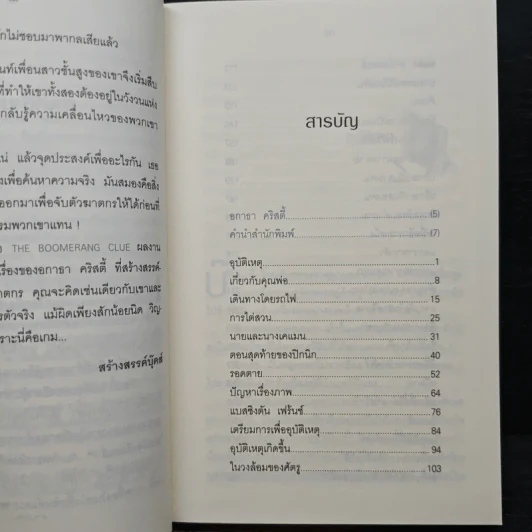 ไม่ชอบมาพากลเสียแล้ว
นท์เพื่อนสาวชั้นสูงของเขาจึงเริ่มสืบ
ที่ทำให้เขาทั้งสองต้องอยู่ในวังวนแห่ง
กลับรู้ความเคลื่อนไหวของพวกเขา
น่ แล้วจุดประสงค์เพื่ออะไรกัน เธอ
งเพื่อค้นหาความจริง มันสมองคือสิ่ง
ออกมาเพื่อจับตัวฆาตกรให้ได้ก่อนที่
รมพวกเขาแทน !
THE BOOMERANG CLUE ผลงาน
เรื่องของอกาธา คริสตี้ ที่สร้างสรรค์-
าตกร คุณจะคิดเช่นเดียวกับเขาและ
รตัวจริง แม้ผิดเพียงสักน้อยนิด วิญ-
ราะนี่คือเกม...
สร้างสรรค์บุ๊คส์
สารบัญ
อกาธา คริสตี้ (5)
คำนำสำนักพิมพ์ (7)
อุบัติเหตุ 1
เกี่ยวกับคุณพ่อ 8
เดินทางโดยรถไฟ 15
การไต่สวน 25
นายและนางเคแมน 31
ตอนสุดท้ายของปิกนิก 40
รอดตาย 52
ปัญหาเรื่องภาพ 64
แบสซิงตัน เฟร้นซ์ 76
เตรียมการเพื่ออุบัติเหตุ 84
อุบัติเหตุเกิดขึ้น 94
ในวงล้อมของศัตรู 103